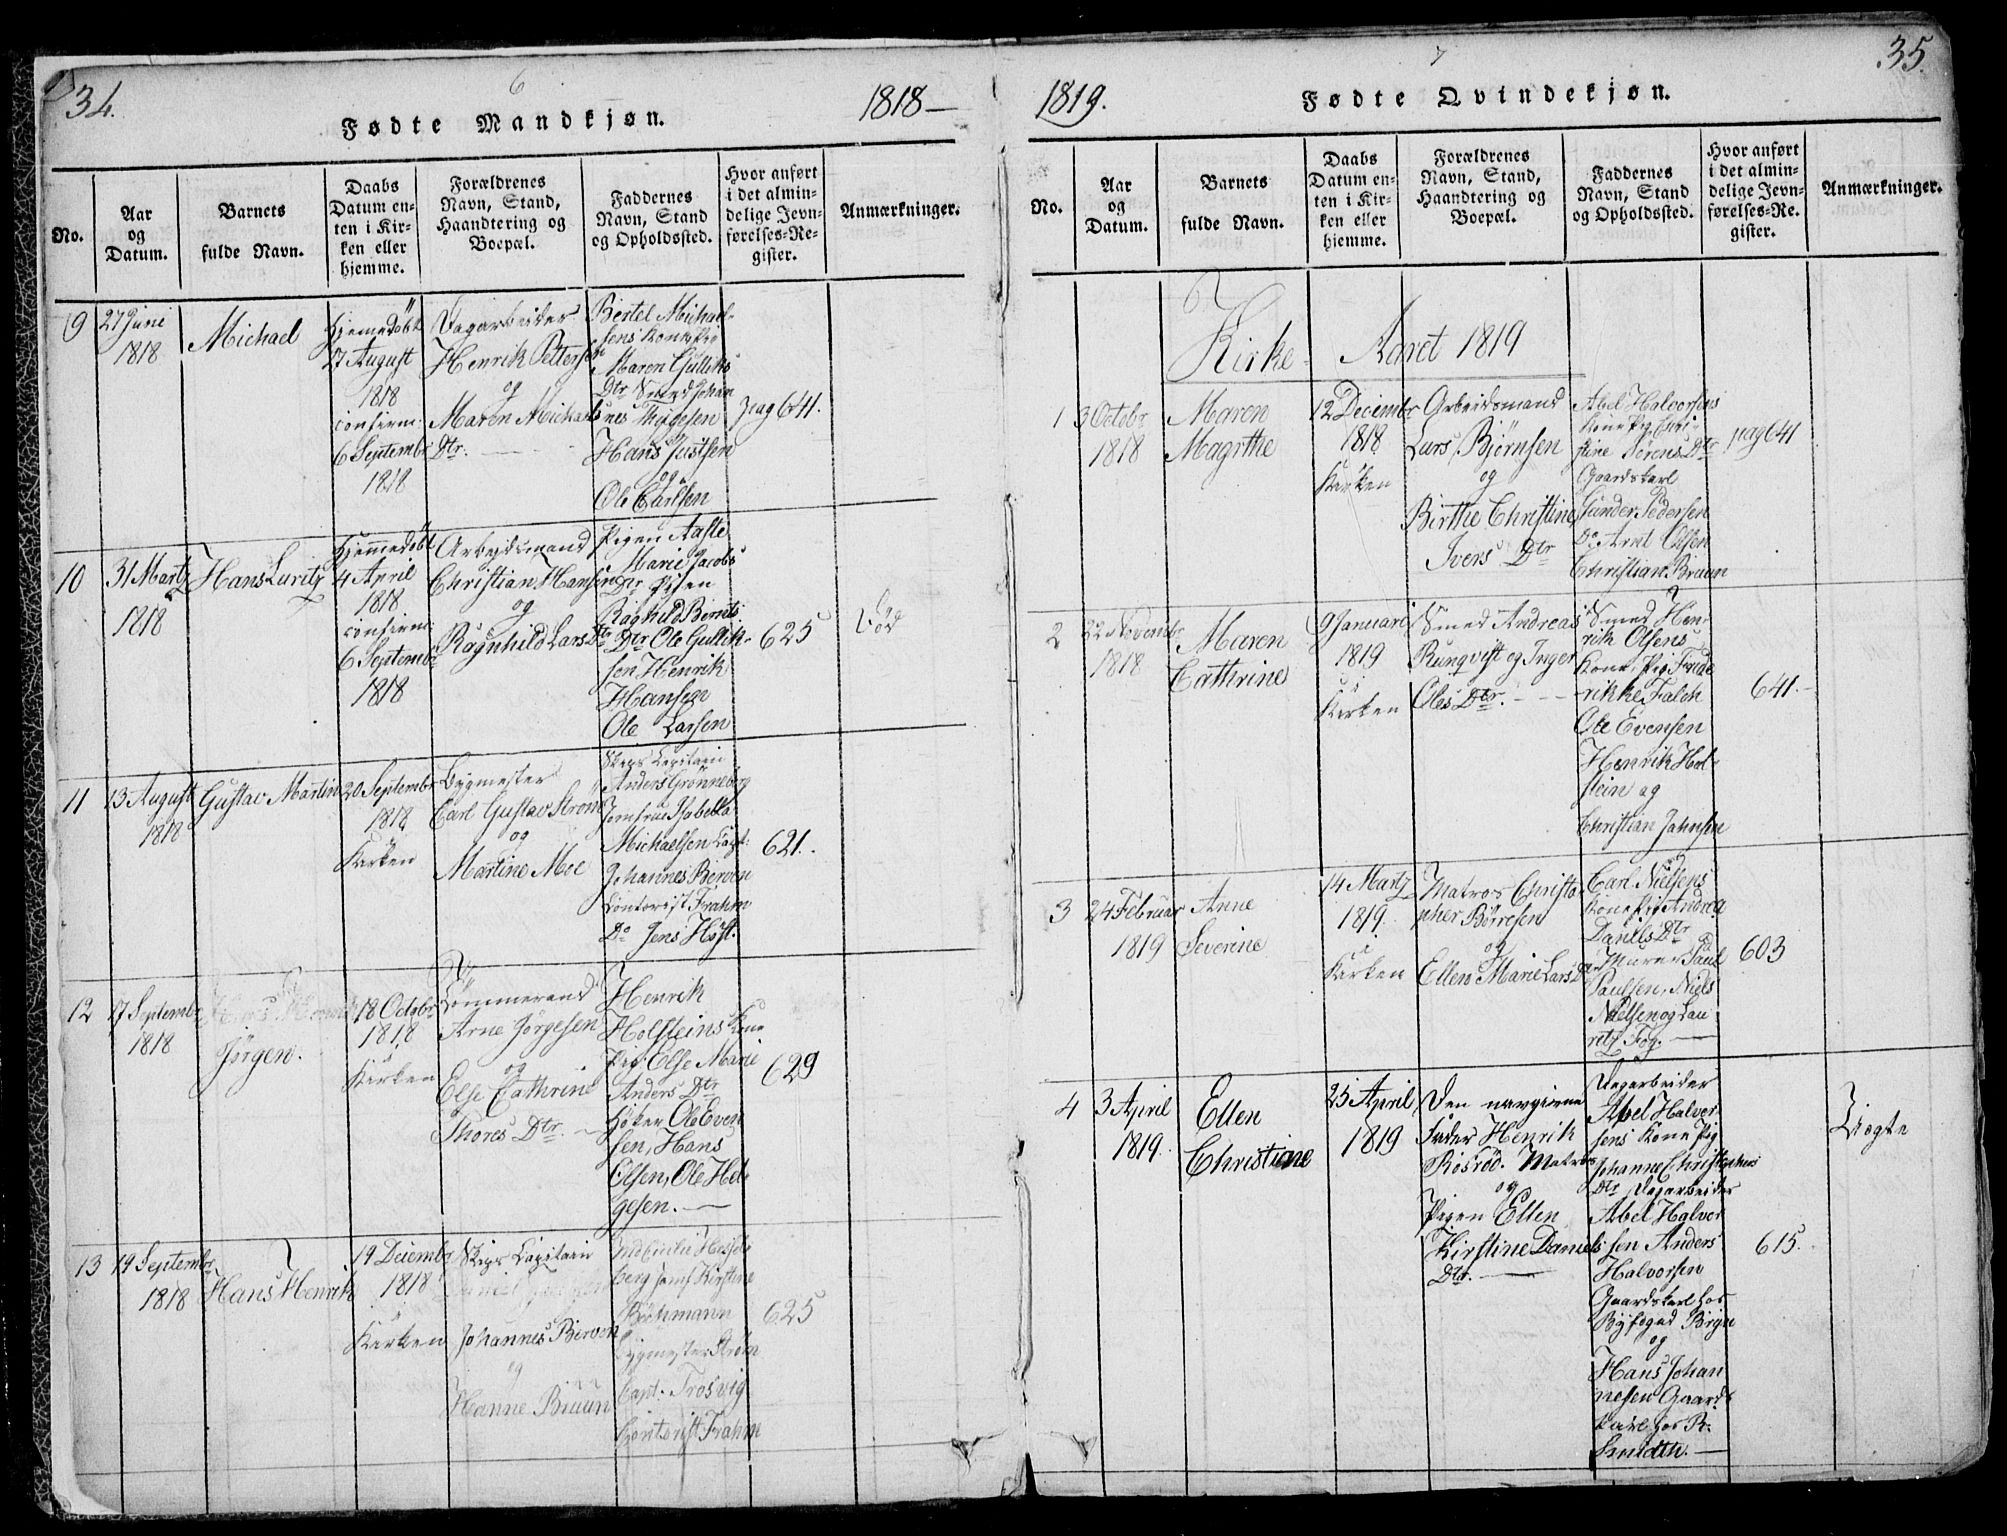 34.
6
1818—
Fødte Mandkjøn.
No.
Aar
og
Datum.
Barnets
fulde Navn.
Daabs
Datum en-
ten i Kir-
ken eller
hjemme.
Forældrenes
Navn, Stand,
Haandtering og
Boepæl.
Faddernes
Navn, Stand
og Opholdssted.
Hvor anført
i det almin-
delige Jevn-
førelses-Re-
gister.
Anmærkninger.
9
27 Juni
1818
Michael
Hjemedøbt
17 August
1818
confirm.
6 Septembr
1818
Dagarbeider
Henrik Pettersen
og
Maren Michaels
Dtr.
Bertel Michael-
sens Kone
Maren Gulliks
Dtr Smed Johan
nes Thygesen
Hans Justsen
og
Ole Carlsen
pag 641.
10
31 Martz
1818
Hans Luritz
Hjemmedøbt
4 April
1818
confirm.
6 Septembr
1818
Arbejdsmand
Christian Hansen
og
Ragnhild Lars Dtr
Pigen Aaste
Marie Jacobs
Dtr Pigen
Ragnhild Bernts
Dtr Ole Gullik-
sen Henrik
Hansen
Ole Larsen
625
Død
11
13 August
1818
Gustav Martin
20 Septembr
1818
Kirken
Bygmester
Carl Gustav Strøm
og
Martine Moe
Skips Capitain
Anders Grønneberg
Jomfrue Isabella
Michaelsen Capt:
Johannes Berven
Contorist Frahm
Do Jens Høst.
621.
12
17 Septembr
1818
Jørgen.
18 Octobr
1818
i
Kirken
Tømmermand
Arne Jørgesen
og
Else Cathrine
Thores Dtr.
Henrik
Holsteins Kone
Pig. Else Marie
Anders Dtr
Høker Ole Even
sen, Hans
Olsen, Ole Hel-
gesen.—
629
13
14 Septembr
1818
Hans Henrik
19 Decembr
1818
i
Kirken
Skips Capitain
Johannes Berven
og
Hanne Bruun
berg Jomf Kirstine
Bøchmann
Bygmester Strøm
Capt. Trosvig
Contorist Frahm
625
35.
7
1819.
Fødte Qvindekjøn.
No.
Aar
og
Datum.
Barnets
fulde Navn.
Daabs
Datum en-
ten i Kir-
ken eller
hjemme.
Forældrenes
Navn, Stand,
Haandtering og
Boepæl.
Faddernes
Navn, Stand
og Opholdssted.
Hvor anført
i det almin-
delige Jevn-
førelses-Re-
gister.
Anmærkninger.
Kirke- Aaret 1819
1
3 Octobr
1818
Maren
Magrthe
12 Decembr
1818
Kirken
Arbeidsmand
Lars Bjørnsen
og
Birthe Christine
Ivers Dtr
Abel Halvorsens
Kone Pig. Chri-
stine Sørens Dtr
Gaardskarl
Gunder Pedersen
Do Arnt Olsen
Christian Bruun
pag 641
2
22 Novembr
1818
Maren
Cathrine
9 Januari
1819
i
Kirken
Smed Andreas
Runqvist og Inger
Oles Dtr.
Smed Hen-
rik Olsens
Kone, Pig Fride
rikke Falch
Ole Evensen
Henrik Hol-
stein og
Christian Jahnsen
641.-
3
24 Februar
1819
Anne
Severine
14 Martz
1819.
i
Kirken
Matros Christo
pher Børresen
og
Ellen Marie Lars Dtr
Carl Nielsens
Kone Pig Andrea
Daniels Dtr
Murer Paul
Paulsen, Niels
Nielsen og Lau
ritz Fog.—
603
4
3 April
1819.
Ellen
Christine
25 April
1819
Den navgivne
Fader Henrik
Rosrød. Matros
og
Pigen Ellen
Kirstine Daniels
Dtr.—
Dagarbeider
Abel Halvor
sens Kone Pig
Johanne Christophers
Dtr Dagarbeider
Abel Halvor
sen Anders
Halvorsen
Gaardskarl hos
Byfoged
og
Hans Johan
nesen Gaards
karl hos R.
Smidth.—
615.
Uægte